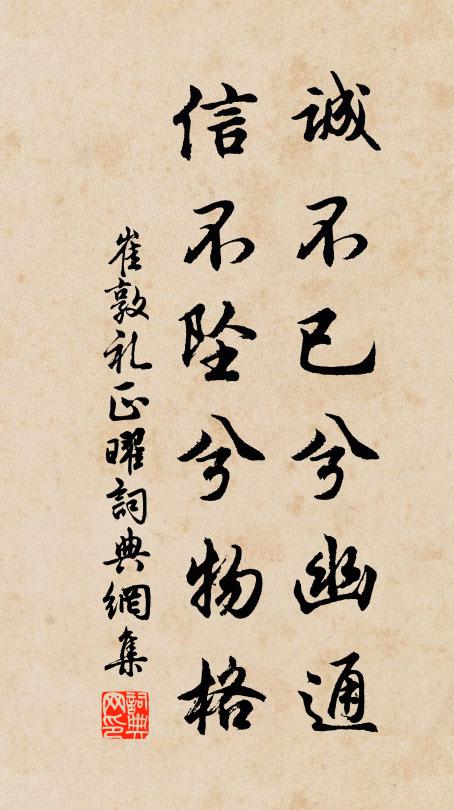 诚不已兮幽通
信不坠兮物格
崔敦礼正曜詞典網集
詞典网印